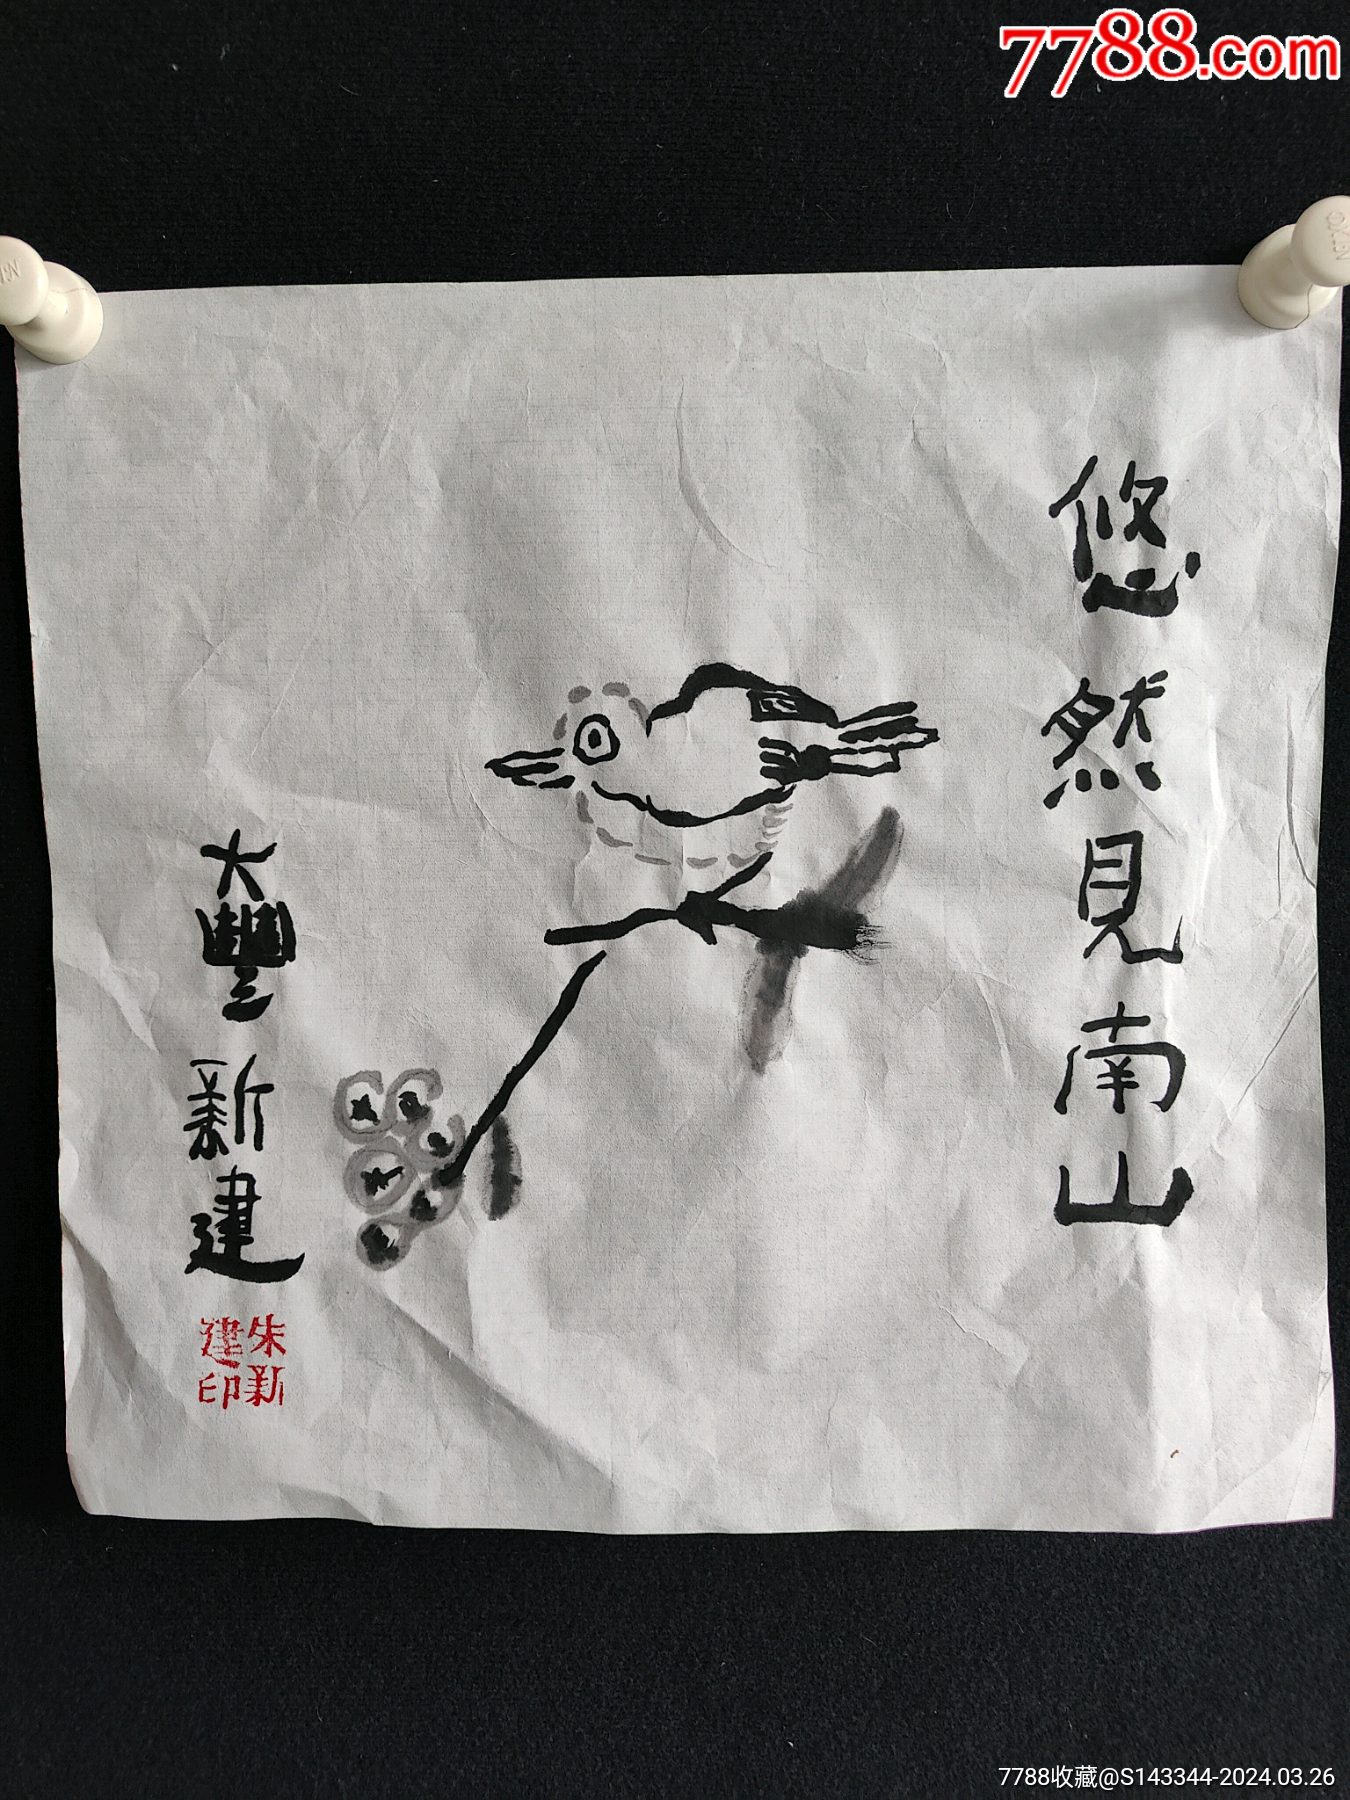 7788.com
悠然見南山
大豐新建
朱新建印
7788收藏@S143344-2024.03.26